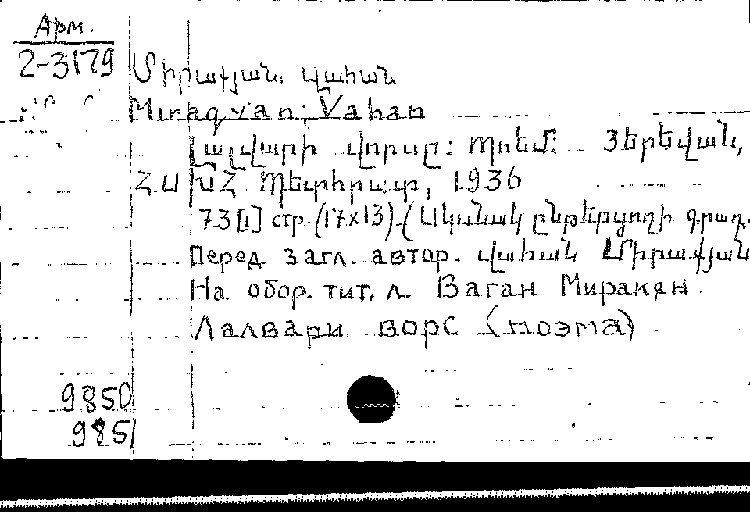 Арм.
2-3179
Միրաքյան, Վահան
Miraqyan, Vahan
Լալվարի վորսը: Պոեմ: Յերեվան,
ՀՍԽՀ Պետհրատ, 1936
73 [1] стр. (17x13). (Սկսնակ ընթերցողի գրադ.
Перед загл. автор. Վահան Միրաքյան
На обор. тит. л. Ваган Миракян
Лалвари ворс (поэма)
9850
9851